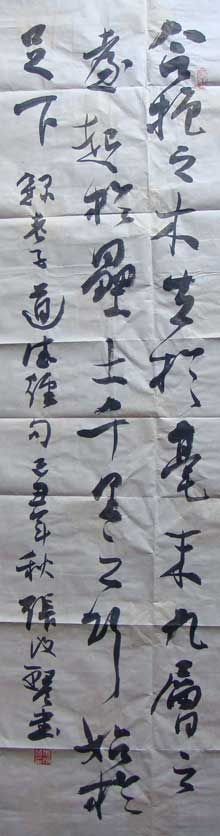 合抱之木生於毫末九層之
臺起於壘土千里之行始於
足下 錄老子道德經句己丑年秋張改琴書